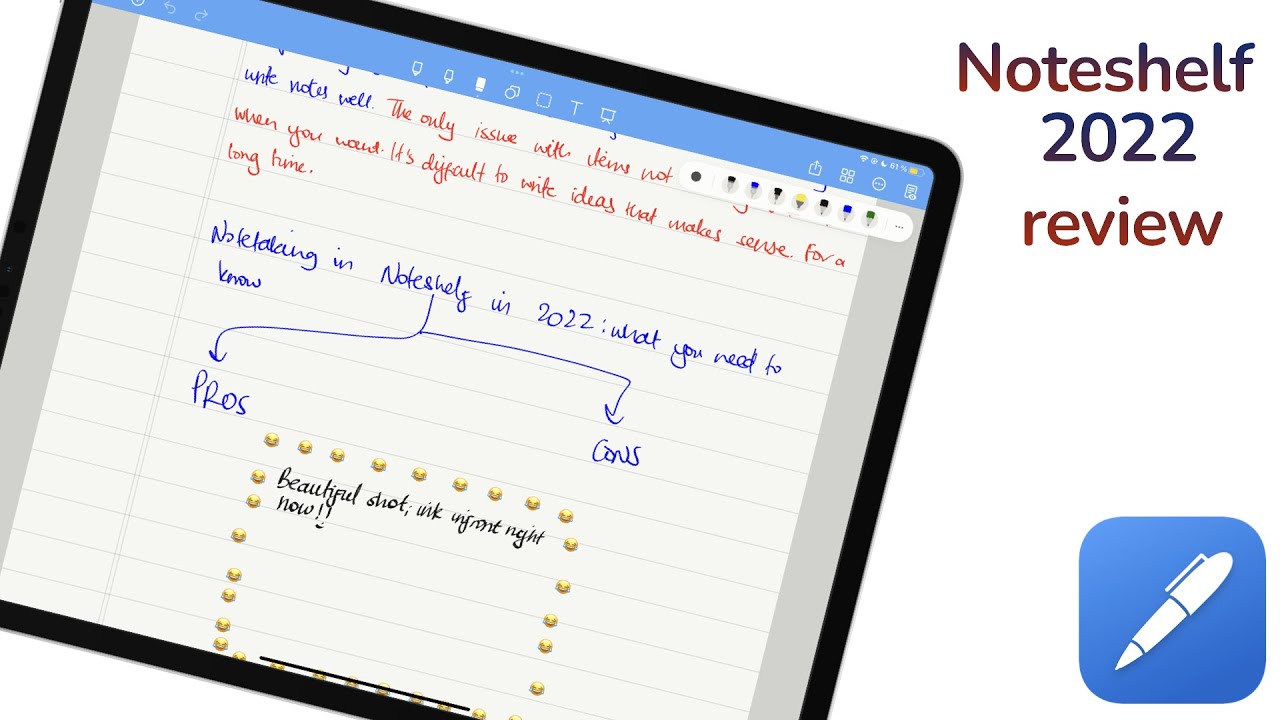 Noteshelf
2022
review
61 %
T
write notes well. The only issue with items not
when you want. It's difficult to write ideas that makes sense. For a
long time.
Notetaking in Noteshelf in 2022: what you need to
know
PROS
CONS
Beautiful shot; ink infront right
now!!